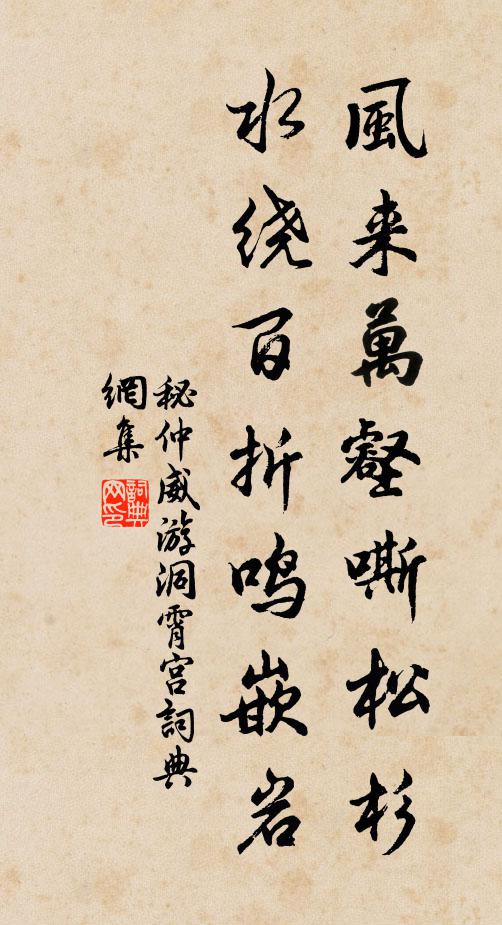 風来萬壑嘶松杉
水绕百折鸣嵌岩
秘仲威游洞霄宫詞典
網集
詞典网印